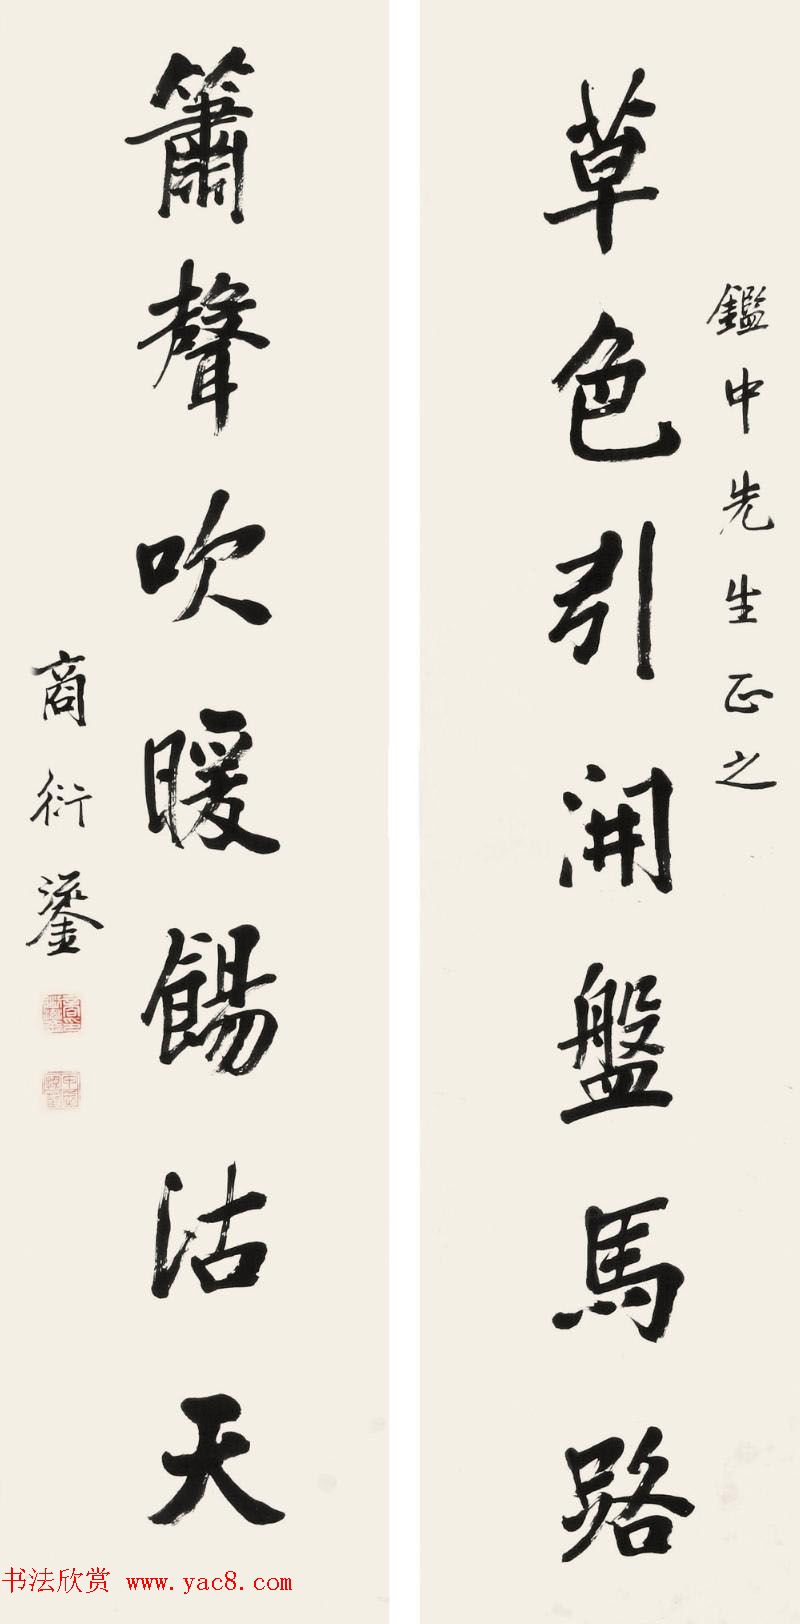 鑑中先生正之
草色引開盤馬路
簫聲吹暖餳沽天
商衍鎏
书法欣赏 www.yac8.com